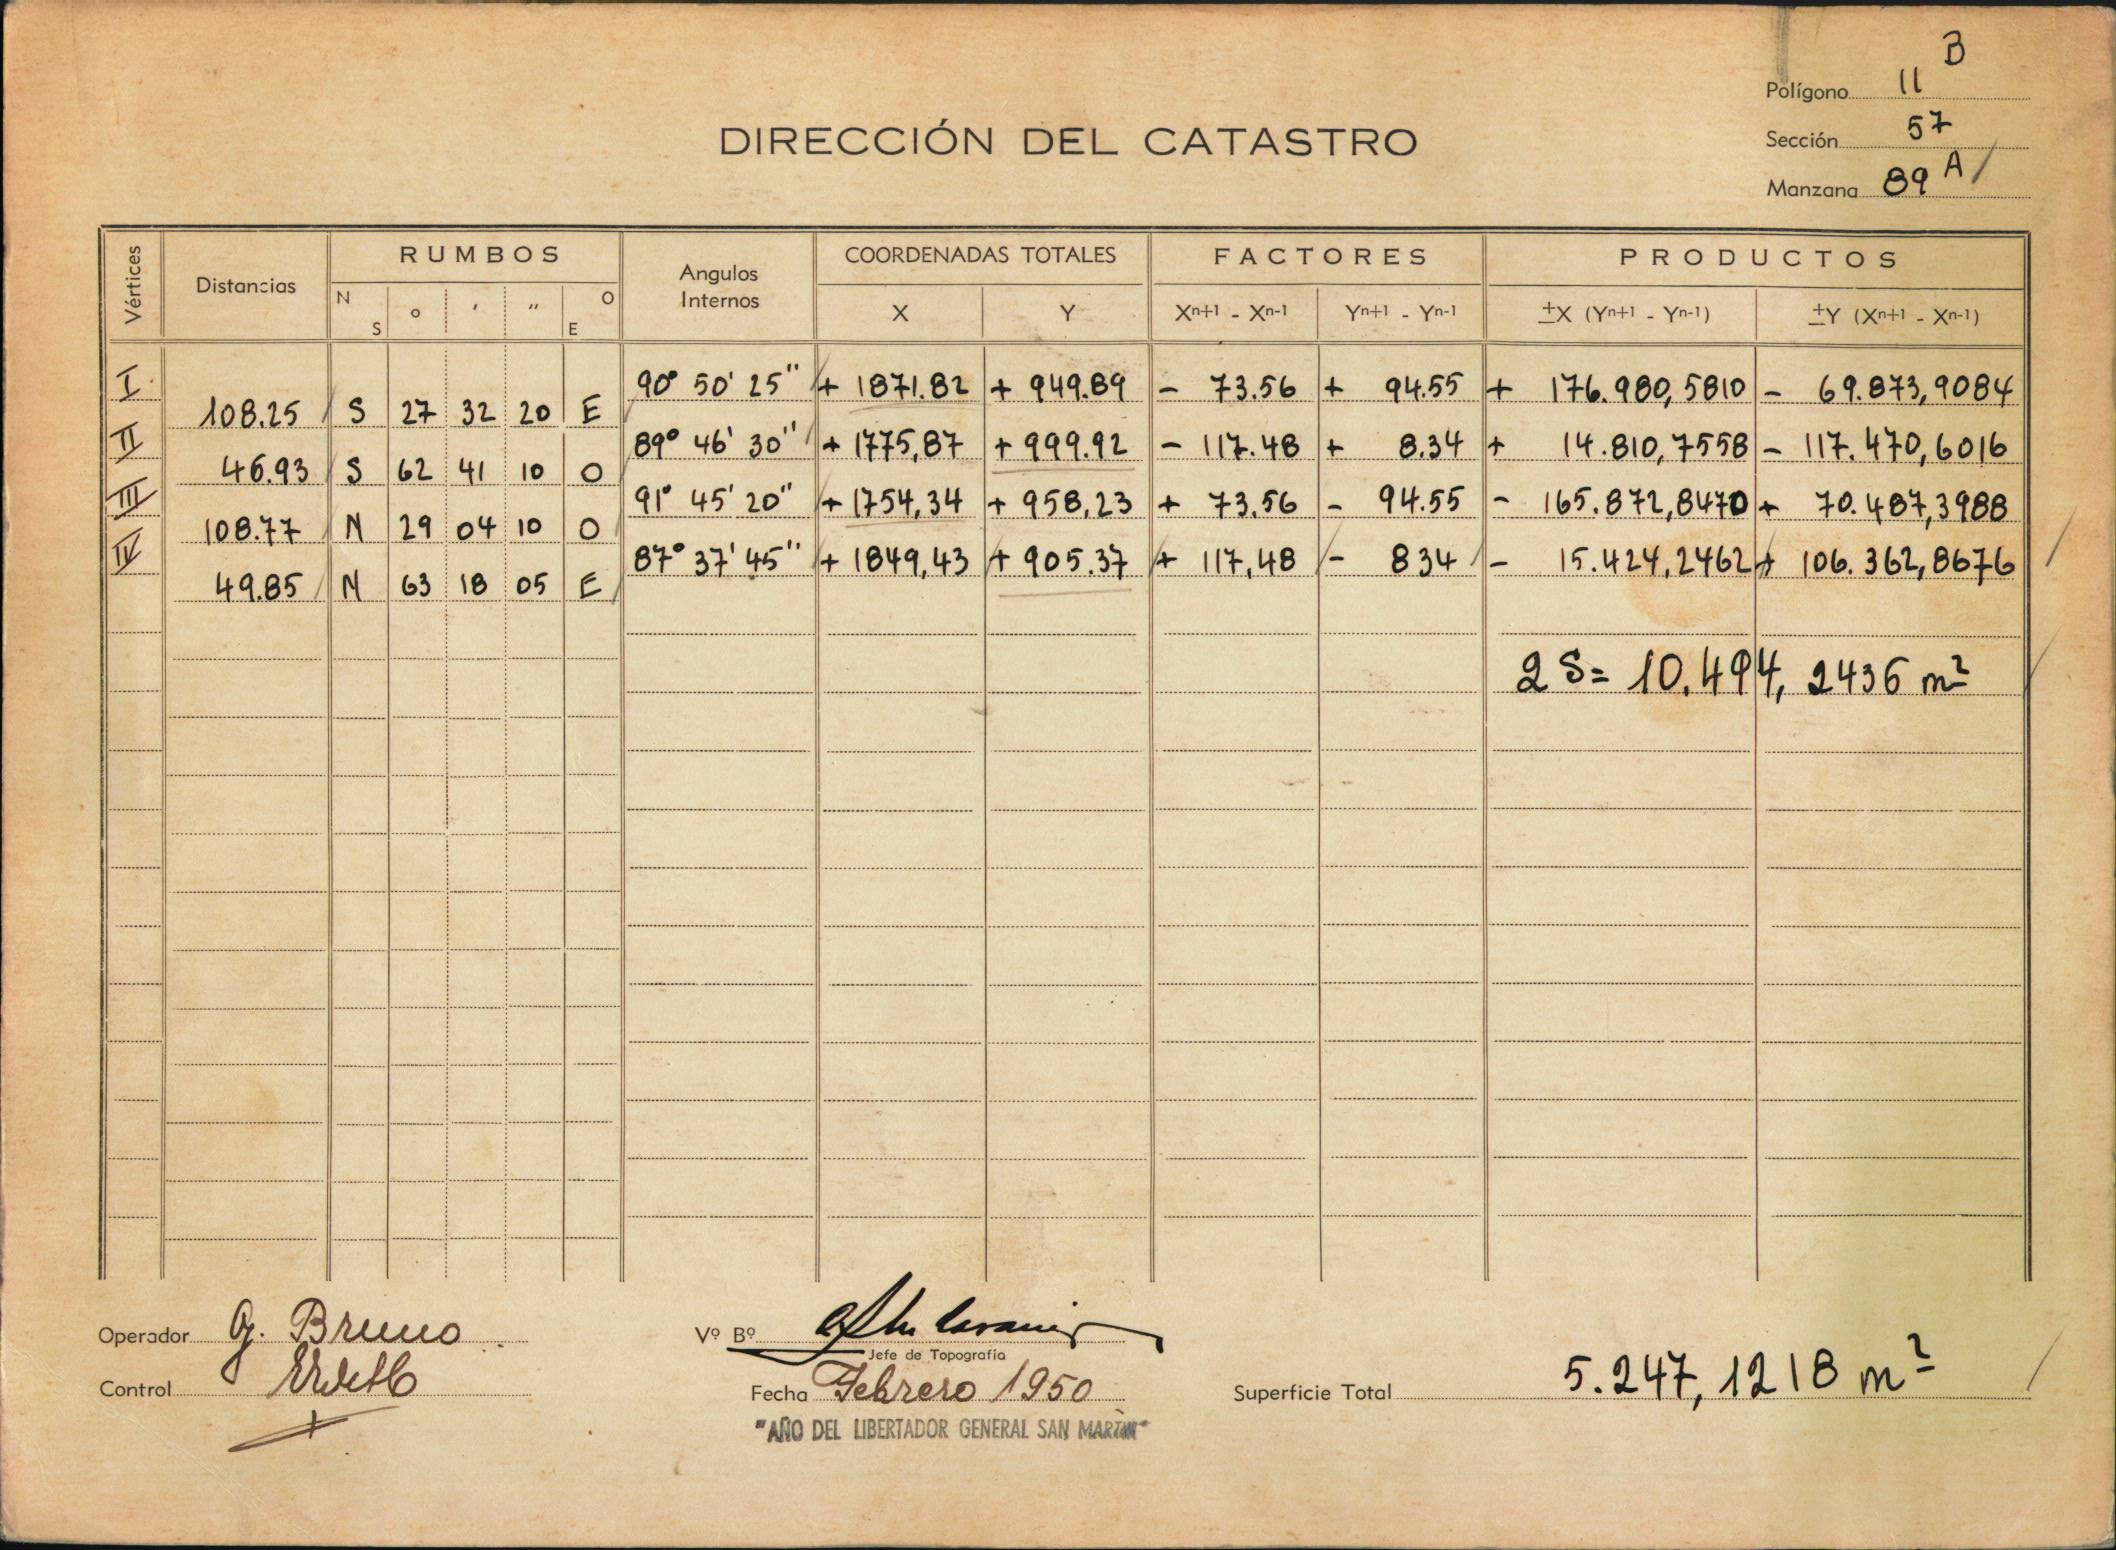 B
Polígono 11
DIRECCIÓN DEL CATASTRO
Sección 57
Manzana 89 A
Vértices Distancias RUMBOS Angulos Internos COORDENADAS TOTALES FACTORES PRODUCTOS
N S ° ′ ″ O E X Y Xn+1 - Xn-1 Yn+1 - Yn-1 ±X (Yn+1 - Yn-1) ±Y (Xn+1 - Xn-1)
I 90° 50' 25" + 1871.82 + 949.89 - 73.56 + 94.55 + 176.980,5810 - 69.873,9084
108.25 S 27 32 20 E
II 89° 46' 30" + 1775,87 + 999.92 - 117.48 + 8.34 + 14.810,7558 - 117.470,6016
46.93 S 62 41 10 O
III 91° 45' 20" + 1754,34 + 958,23 + 73.56 - 94.55 - 165.872,8470 + 70.487,3988
108.77 N 29 04 10 O
IV 87° 37' 45" + 1849,43 + 905.37 + 117,48 - 834 - 15.424,2462 + 106.362,8676
49.85 N 63 18 05 E
2 S = 10.494, 2436 m²
Operador G. Bruno
Vº Bº
Jefe de Topografía
Control
Fecha Febrero 1950
Superficie Total 5.247,1218 m²
"AÑO DEL LIBERTADOR GENERAL SAN MARTIN"